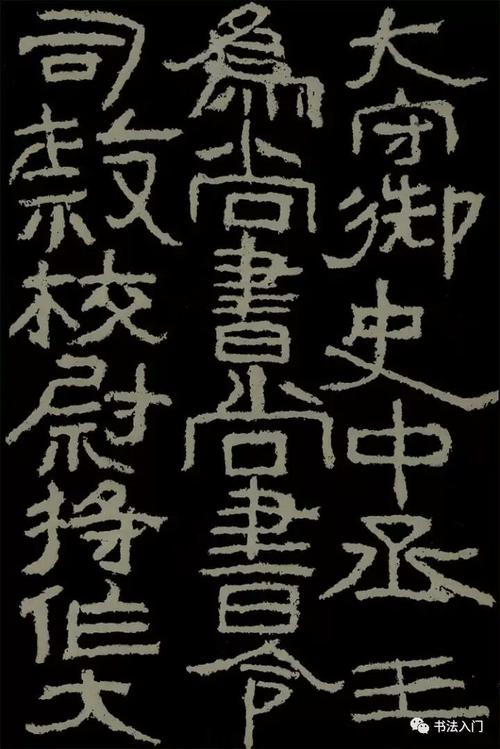 大守御史中丞王
為尚書尚書令
司隸校尉將作大
书法入门